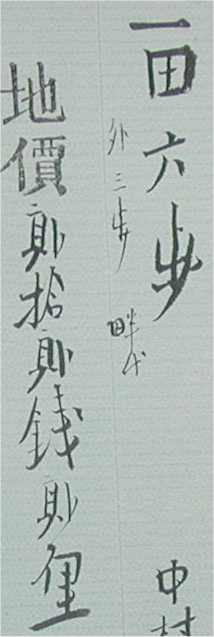 一田六歩
外三歩 畔代
中村
地價貳拾貳銭貳厘